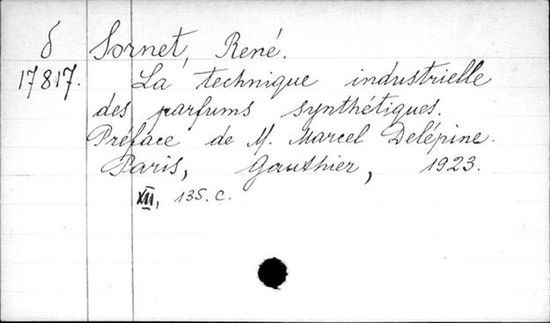 δ Sornet, René.
17817. La technique industrielle
des parfums synthétiques.
Préface de M. Marcel Delépine.
Paris, Gauthier, 1923.
XII, 135. c.